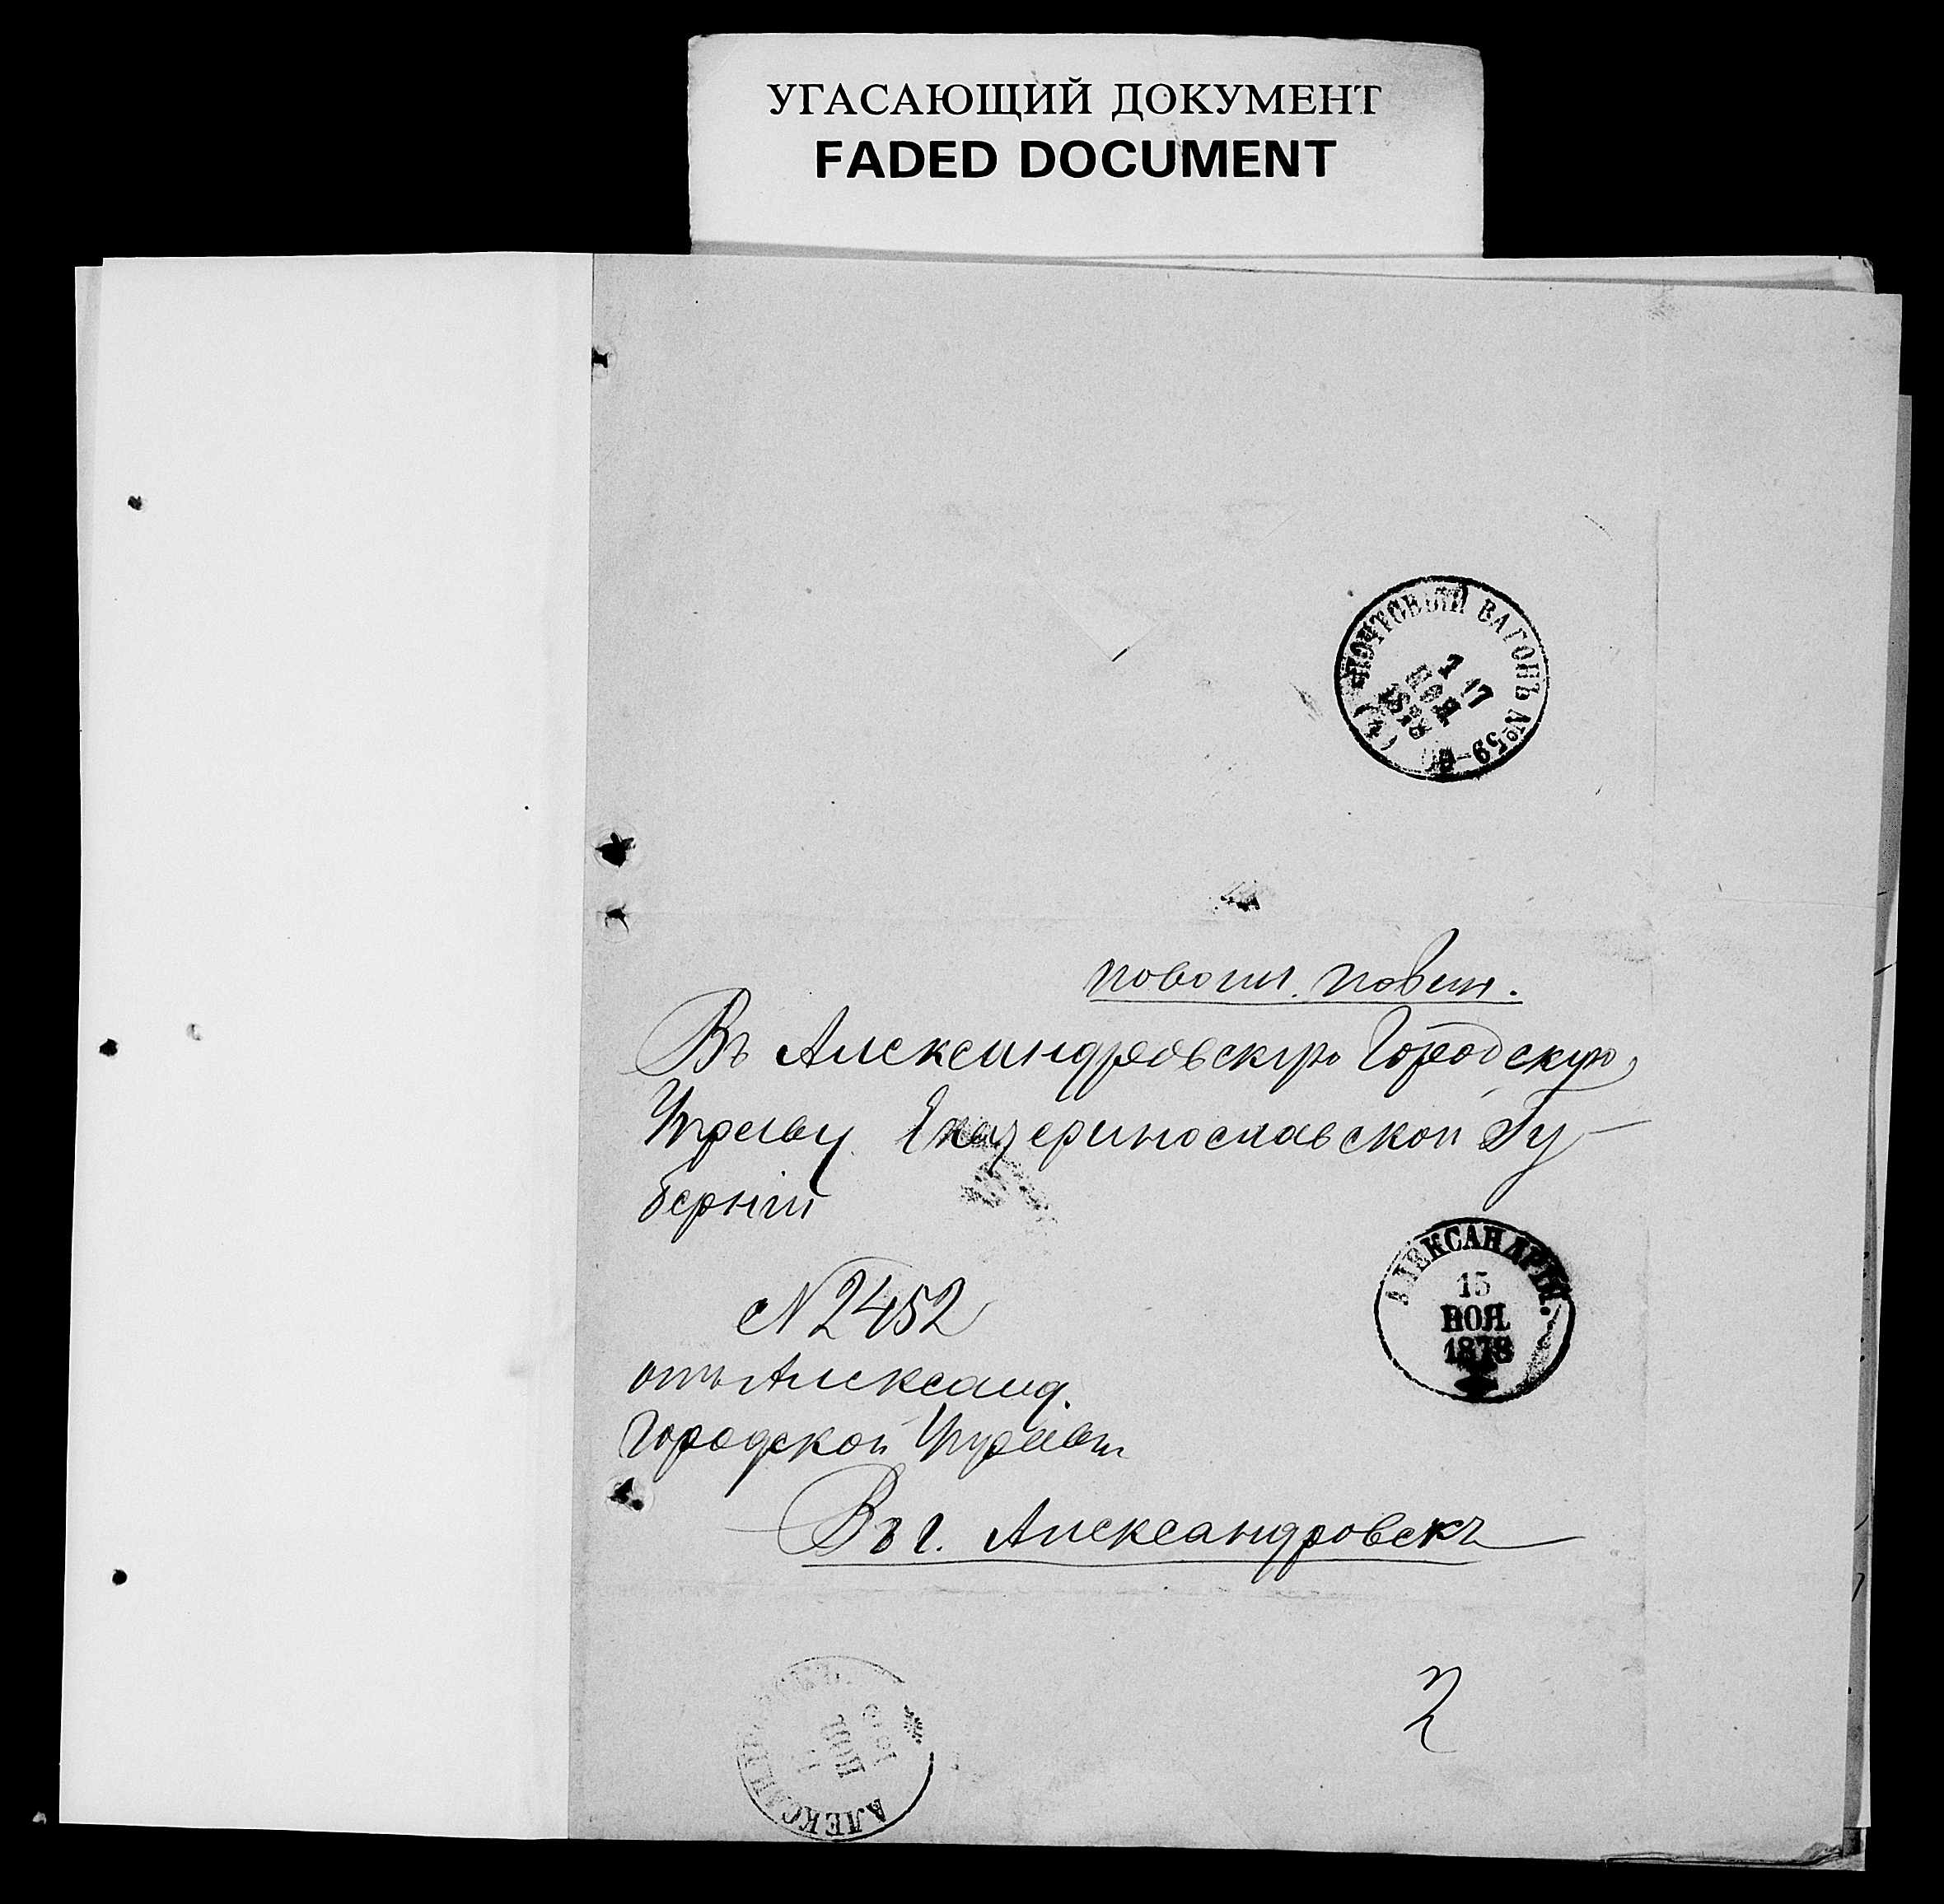 УГАСАЮЩИЙ ДОКУМЕНТ
FADED DOCUMENT
ПОЧТОВЫЙ ВАГОНЪ №59-
17
НОЯ
повоин. повин.
Въ Александровскую Городскую
Управу Екатеринославской Гу-
берніи
АЛЕКСАНДРІЯ.
15
НОЯ.
1878
№ 2452
отъ Александ.
Городской Управы
Въ г. Александровскъ
НОЯ